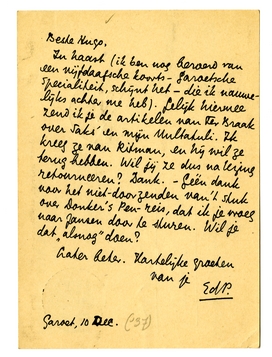 Beste Hugo,
In haast (ik ben nog beroerd van
een vijfdaagsche koorts - Garoetsche
Specialiteit, schijnt het - die ik nauwe-
lijks achter me heb). Gelijk hiermee
zend ik je de artikelen van Ter Braak
over Saks' en mijn Multatuli. Ik
kreeg ze van Ritman, en hij wil ze
terug hebben. Wil jij ze dus na lezing
retourneeren? Dank. - Géén dank
voor het niet-doorzenden van 't stuk
over Donker's Pen-reis, dat ik je vroeg
naar Jansen door te sturen. Wil je
dat "alnog" doen?
Later beter. Hartelijke groeten
van je
EdP.
Garoet, 10 Dec. (37)